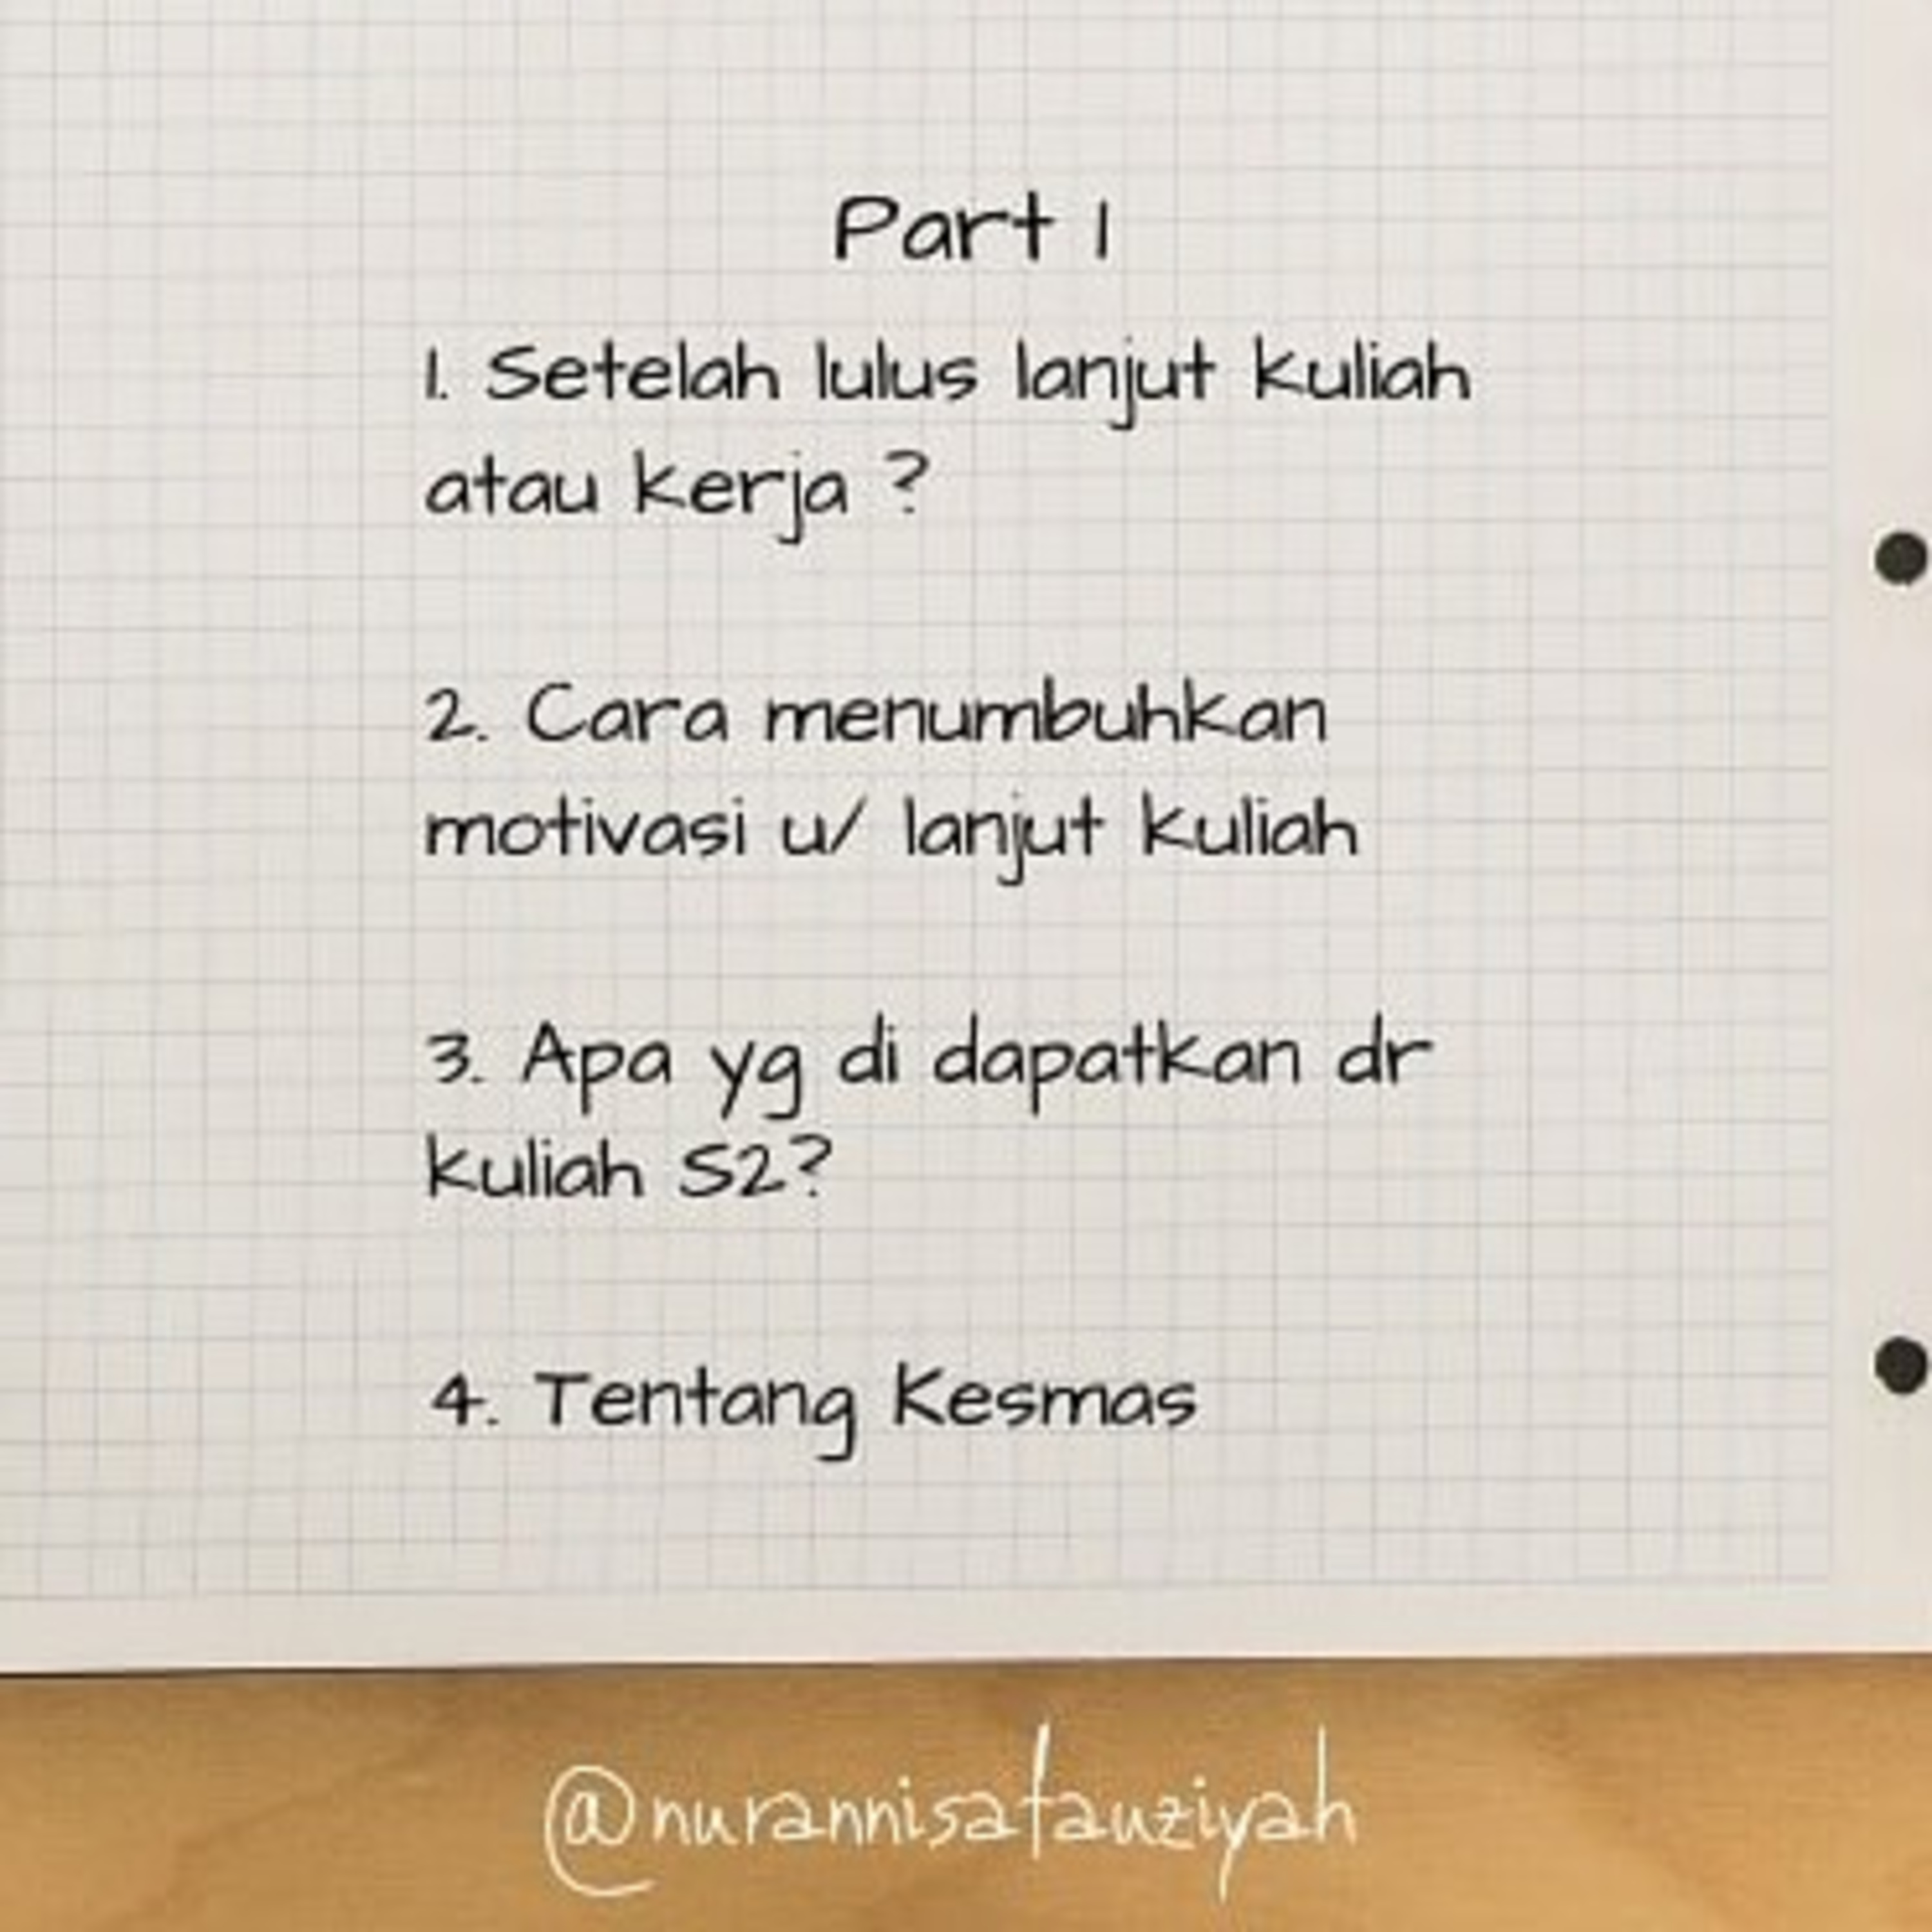 Part 1
1. Setelah lulus lanjut kuliah
atau kerja ?
2. Cara menumbuhkan
motivasi u/ lanjut kuliah
3. Apa yg di dapatkan dr
kuliah S2?
4. Tentang Kesmas
@nurannisafauziyah